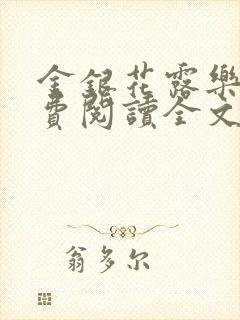 金銀花露樂
費閱讀全文
翁多尔